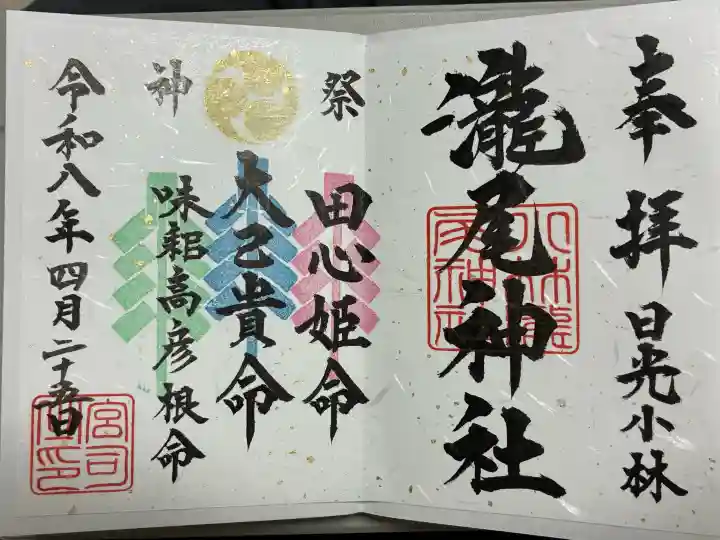 奉拝 日光小林
瀧尾神社
小林瀧尾神社
祭神
田心姫命
大己貴命
味耜高彦根命
令和八年四月二十五日
宮司之印